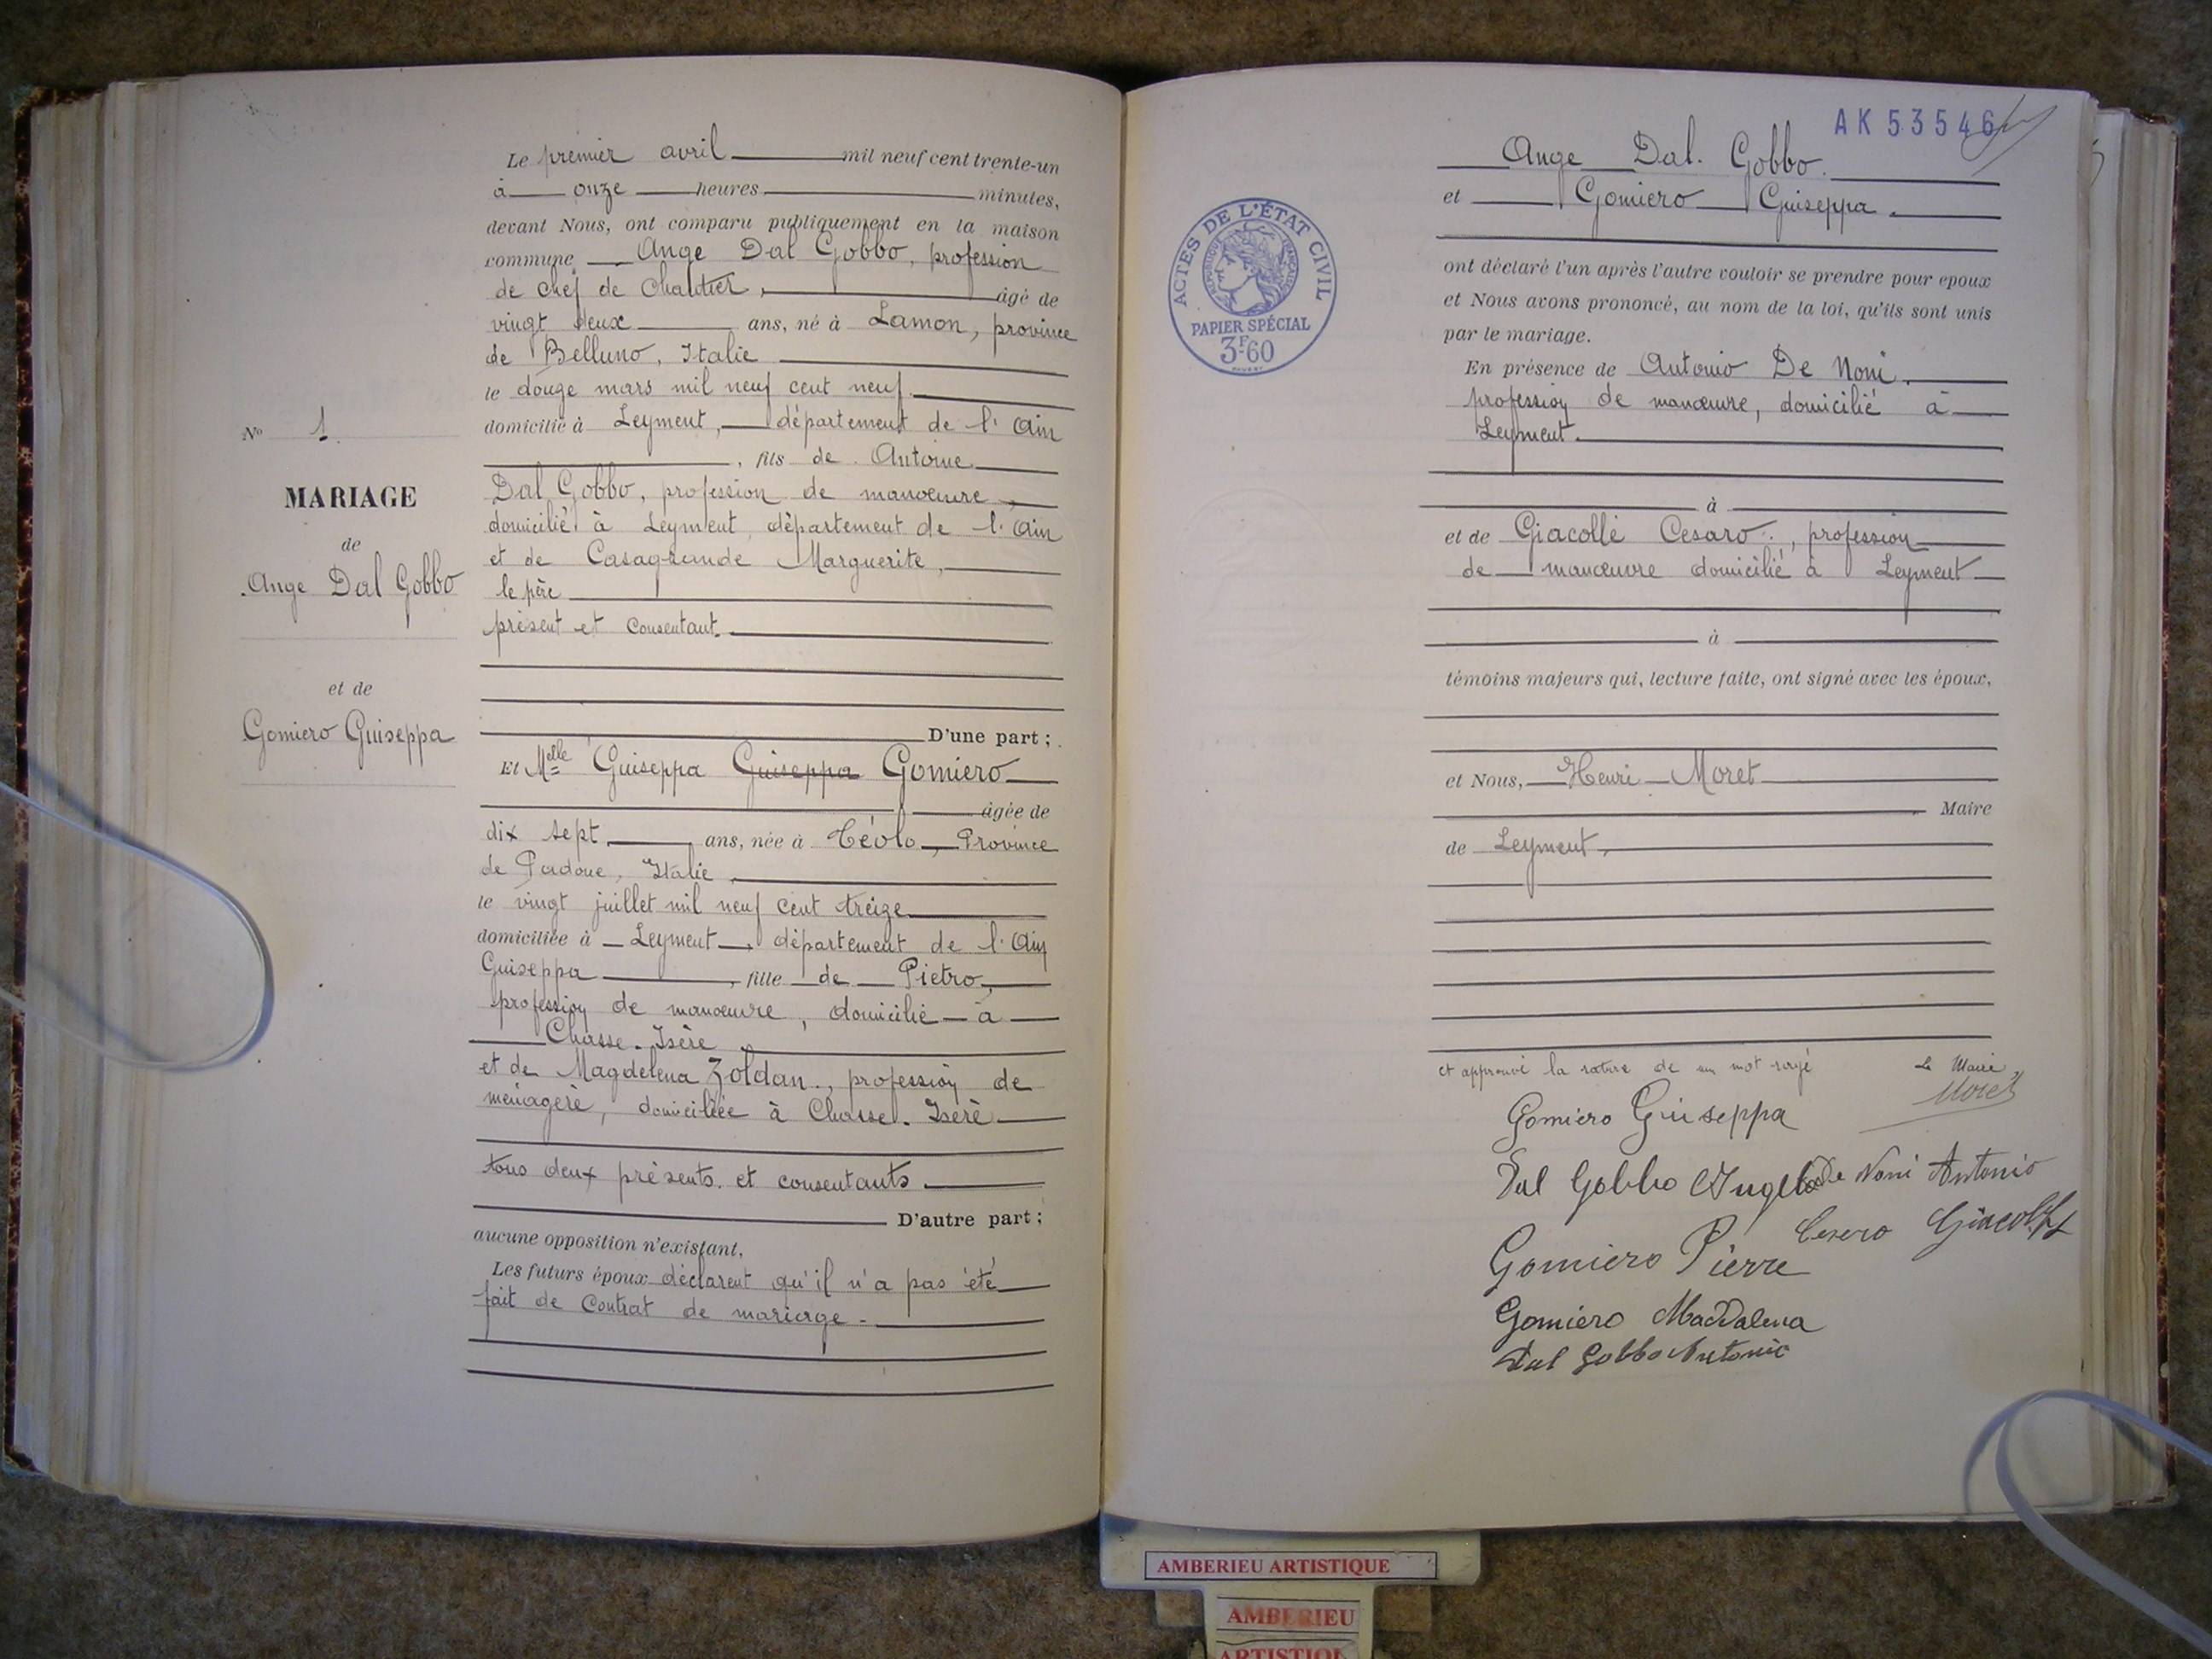 Nº 1.
MARIAGE
de
Ange Dal Gobbo
et de
Gomiero Guiseppa
Le premier avril mil neuf cent trente-un
à onze heures minutes,
devant Nous, ont comparu publiquement en la maison
commune Ange Dal Gobbo, profession
de chef de Chantier, âgé de
vingt deux ans, né à Lamon, province
de Belluno, Italie
le douze mars mil neuf cent neuf.
domicilié à Leyment, département de l'Ain
, fils de Antoine
Dal Gobbo, profession de manœuvre,
domicilié à Leyment, département de l'Ain
et de Casagrande Marguerite,
le père
présent et consentant.
D'une part ;
Et Melle Guiseppa Guiseppa Gomiero
âgée de
dix sept ans, née à Téolo, Province
de Padoue, Italie,
le vingt juillet mil neuf cent treize
domiciliée à Leyment, département de l'Ain
Guiseppa, fille de Pietro,
profession de manœuvre, domicilié à
Chasse. Isère
et de Magdelena Zoldan., profession de
ménagère, domiciliée à Chasse. Isère
tous deux présents. et consentants.
D'autre part ;
aucune opposition n'existant,
Les futurs époux déclarent qu'il n'a pas été
fait de Contrat de mariage.
AK 53546
Ange Dal. Gobbo.
et Gomiero Guiseppa.
ACTES DE L'ÉTAT CIVIL
RÉPUBLIQUE FRANÇAISE
PAPIER SPÉCIAL
3F60
ont déclaré l'un après l'autre vouloir se prendre pour époux
et Nous avons prononcé, au nom de la loi, qu'ils sont unis
par le mariage.
En présence de Antonio De Noni.
profession de manœuvre, domicilié à
Leyment.
à
et de Giacolli Cesaro., profession
de manœuvre domicilié à Leyment
à
témoins majeurs qui, lecture faite, ont signé avec les époux,
et Nous, Henri Moret
Maire
de Leyment,
et approuvé la rature de un mot rayé
Le Maire
Moret
Gomiero Guiseppa
Dal Gobbo Angelo
De Noni Antonio
Gomiero Pierre
Cesero
Gomiero Maddalena
Dal Gobbo Antonio
AMBERIEU ARTISTIQUE
AMBERIEU